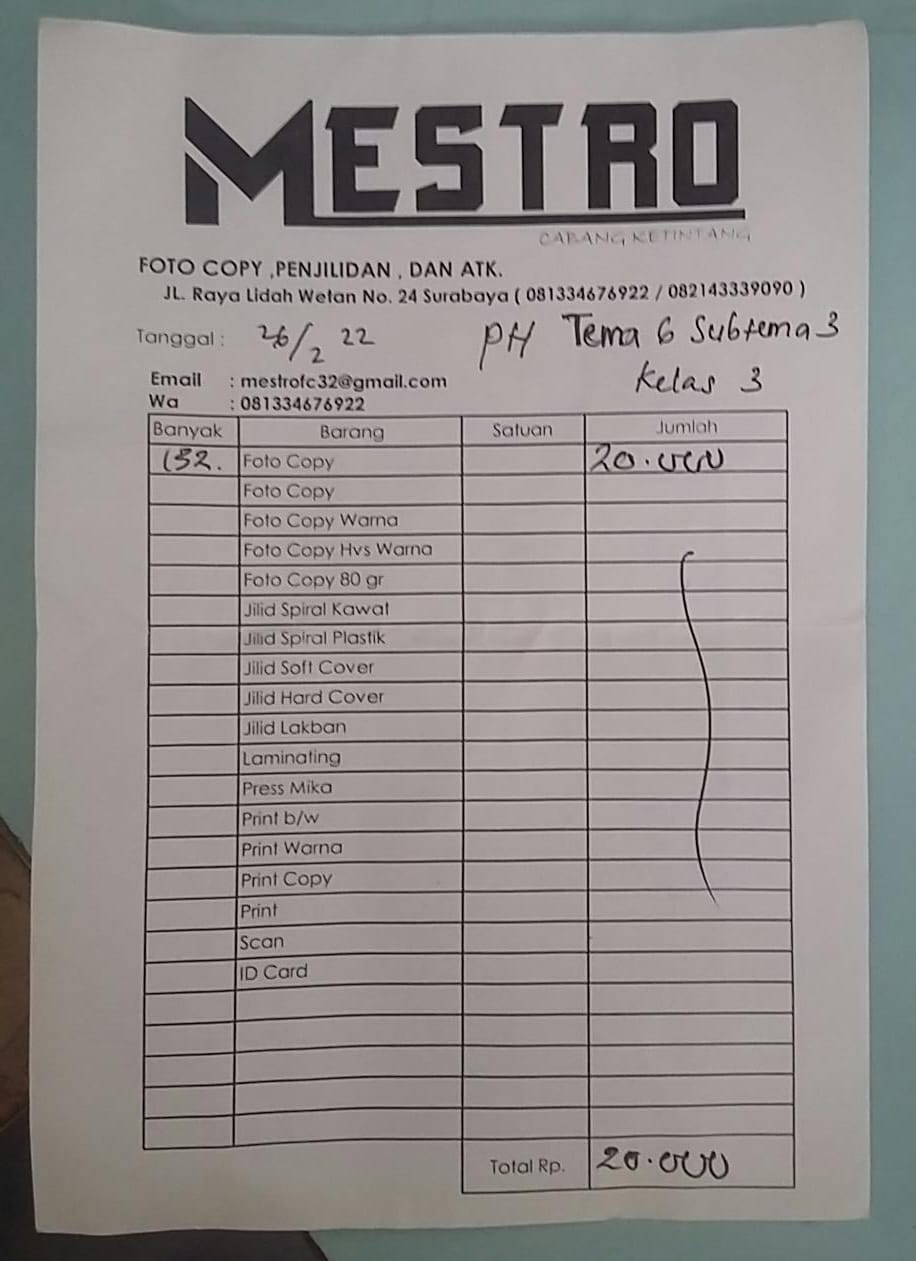 MESTRO
CABANG KETINTANG
FOTO COPY ,PENJILIDAN , DAN ATK.
JL. Raya Lidah Wetan No. 24 Surabaya ( 081334676922 / 082143339090 )
Tanggal : 26/2 22 PH Tema 6 Subtema 3
Kelas 3
Email : mestrofc32@gmail.com
Wa : 081334676922
Banyak Barang Satuan Jumlah
152. Foto Copy 20.000
Foto Copy
Foto Copy Warna
Foto Copy Hvs Warna
Foto Copy 80 gr
Jilid Spiral Kawat
Jilid Spiral Plastik
Jilid Soft Cover
Jilid Hard Cover
Jilid Lakban
Laminating
Press Mika
Print b/w
Print Warna
Print Copy
Print
Scan
ID Card
Total Rp. 20.000